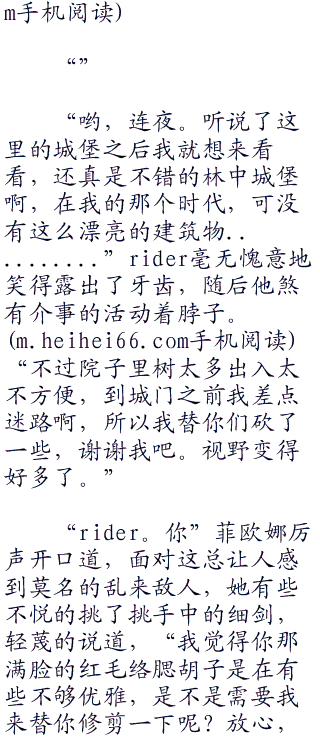 m手机阅读)
“”
“哟，连夜。听说了这
里的城堡之后我就想来看
看，还真是不错的林中城堡
啊，在我的那个时代，可没
有这么漂亮的建筑物..
........”rider毫无愧意地
笑得露出了牙齿，随后他煞
有介事的活动着脖子。
(m.heihei66.com手机阅读)
“不过院子里树太多出入太
不方便，到城门之前我差点
迷路啊，所以我替你们砍了
一些，谢谢我吧。视野变得
好多了。”
“rider。你”菲欧娜厉
声开口道，面对这总让人感
到莫名的乱来敌人，她有些
不悦的挑了挑手中的细剑，
轻蔑的说道，“我觉得你那
满脸的红毛络腮胡子是在有
些不够优雅，是不是需要我
来替你修剪一下呢？放心，